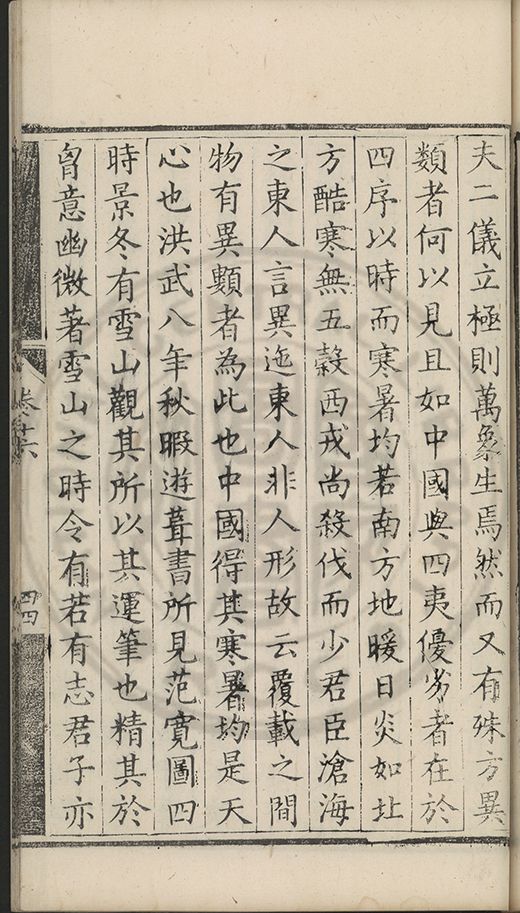 夫二儀立極則萬象生焉然而又有殊方異
類者何以見且如中國與四夷優劣者在於
四序以時而寒暑均若南方地暖日炎如北
方酷寒無五穀西戎尚殺伐而少君臣滄海
之東人言異迤東人非人形故云覆載之間
物有異類者為此也中國得其寒暑均是天
心也洪武八年秋暇遊葺書所見范寬圖四
時景冬有雪山觀其所以其運筆也精其於
胷意幽微著雪山之時令有若有志君子亦
卷十六
四四